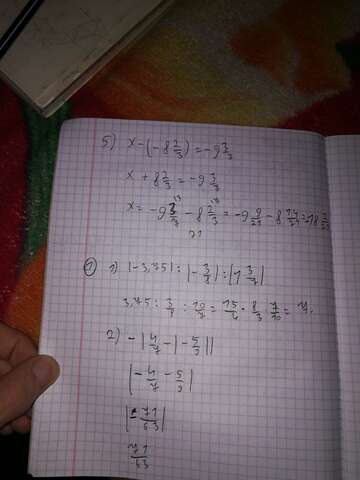 5) x-(-8 2/3)=-9 3/7
x + 8 2/3 = -9 3/7
x = -9 3/7 - 8 2/3 = -9 9/21 - 8 14/21 = 18
21
1) |-3,75| : |-3/8| : |1 3/7|
3,75 : 3/8 : 10/7 = 15/4 · 8/3 · 7/10 = 7.
2) -|4/7 - |-5/9||
|-4/7 - 5/9|
|-71/63|
71/63